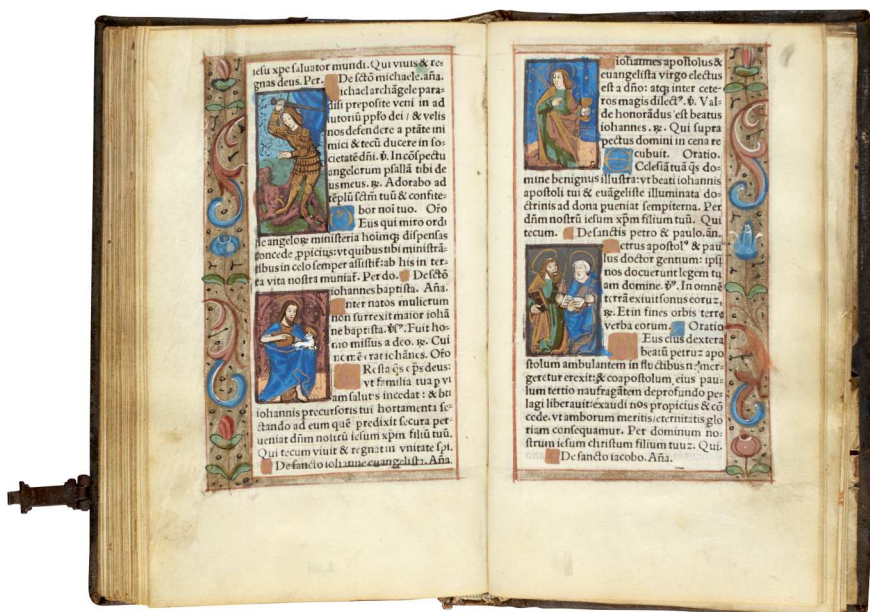 iesu xp̄e saluator mundi. Qui viuis & re-
gnas deus. Per. De sctō michaele. aña.
ichael archāgele para-
disi preposite veni in ad
iutoriū pp̄lo dei / & velis
nos defendere a ptāte ini
mici & tecū ducere in so-
cietatē dn̄i. ℣. In cōspectu
angelorum psallā tibi de
us meus. ℟. Adorabo ad
tēplū sctm̄ tuū & confite-
bor noī tuo. Orō
Eus qui miro ordi
ne angeloꝝ ministeria hoīmqꝫ dispensas
concede ꝓpicius: vt quibus tibi ministrā-
tibus in celo semper assistiṫ: ab his in ter-
ra vita nostra muniaṫ. Per do. De sctō
iohannes baptista. Aña.
nter natos mulierum
non surrexit maior iohā
ne baptista. ℣. Fuit ho-
mo missus a deo. ℟. Cui
nomē erat iohānes. Orō
Resta q̄s op̄s deus:
vt familia tua p vi
am salut̉ incedat: & bti
iohannis precursoris tui hortamenta se-
ctando ad eum quē predixit secura per-
ueniat dn̄m nolt̄rū iesum xp̄m filiū tuū.
Qui tecum viuit & regnat in vnitate spī.
De sancto iohanne euangelista. Aña.
iohannes apostolus &
euangelista virgo electus
est a dn̄o: atqꝫ inter cete-
ros magis dilectꝰ. ℣. Val-
de honorādus est beatus
iohannes. ℟. Qui supra
pectus domini in cena re
cubuit. Oratio.
Cclesiā tuā q̄s do-
mine benignus illustra: vt beati iohannis
apostoli tui & euāgeliste illuminata do-
ctrinis ad dona pueniat sempiterna. Per
dn̄m nostrū iesum xp̄m filium tuū. Qui
tecum. De sanctis petro & paulo. añ.
etrus apostolꝰ & pau
lus doctor gentium: ipsi
nos docuerunt legem tu
am domine. ℣. In omnē
terrā exiuit sonus eoruꝫ,
℟. Et in fines orbis terre
verba eorum. Oratio
Eus cuius dextera
beatū petruꝫ apo
stolum ambulantem in fluctibus ne mer-
geretur erexit: & coapostolum eius pau-
lum tertio naufragātem de profundo pe-
lagi liberauit: exaudi nos propicius & cō
cede. vt amborum meritis eternitatis glo
riam consequamur. Per dominum no-
strum iesum christum filium tuuꝫ. Qui.
De sancto iacobo. Aña.